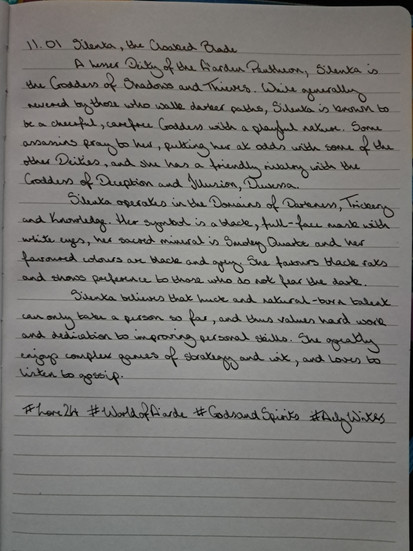 11.01 Silenka, the Cloaked Blade
A lesser Deity of the Aarden Pantheon, Silenka is
the Goddess of Shadows and Thieves. While generally
revered by those who walk darker paths, Silenka is known to
be a cheerful, carefree Goddess with a playful nature. Some
assassins pray to her, putting her at odds with some of the
other Deities, and she has a friendly rivalry with the
Goddess of Deception and Illusion, Duressa.
Silenka operates in the Domains of Darkness, Trickery
and Knowledge. Her symbol is a black, full-face mask with
white eyes, her sacred mineral is Smokey Quartz and her
favoured colours are black and grey. She favours black rats
and shows preference to those who do not fear the dark.
Silenka believes that luck and natural-born talent
can only take a person so far, and thus values hard work
and dedication to improving personal skills. She greatly
enjoys complex games of strategy and wit, and loves to
listen to gossip.
#Lore24 #WorldofAarde #GodsandSpirits